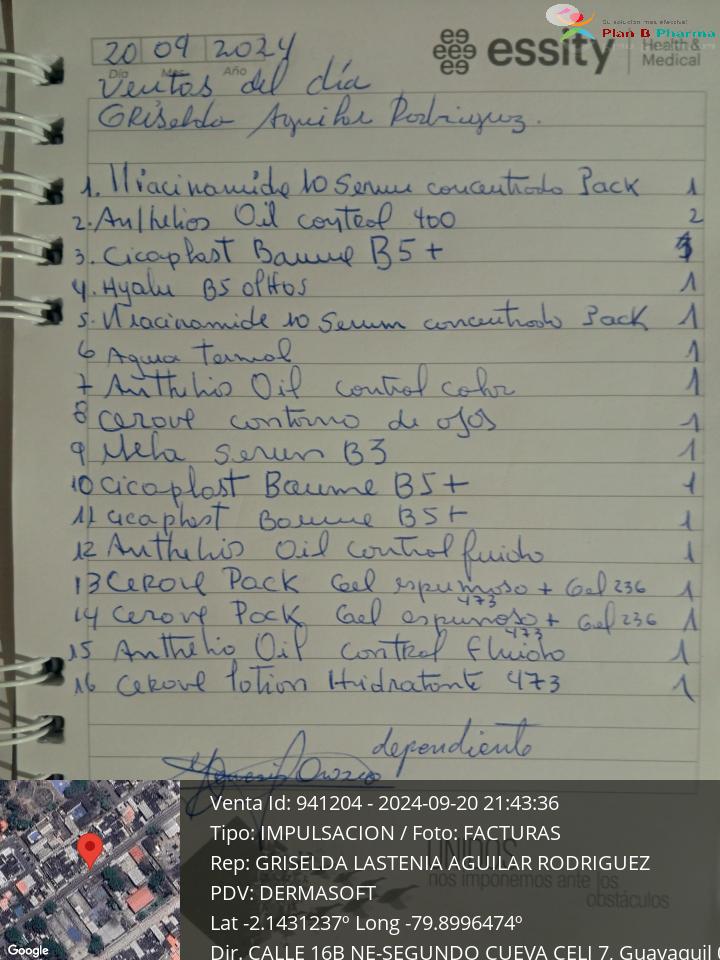 Su solución más efectiva!
Plan B Pharma
essity
Health &
Medical
20 09 2024
Día Año
Ventas del día
Griselda Aguilar Rodriguez.
1. Niacinamide 10 Serum concentrado Pack 1
2. Anthelios Oil control 400 2
3. Cicaplast Baume B5+
4. Hyalu B5 olHos 1
5. Niacinamide 10 Serum concentrado Pack 1
6 Agua termal 1
7 Anthelio Oil control color 1
8 Cerave contorno de ojos 1
9 Mela Serum B3 1
10 Cicaplast Baume B5+ 1
11 Cicaplast Baume B5+ 1
12 Anthelio Oil control fluido 1
13 Cerave Pack Gel espumoso + Gel 236 1
473
14 Cerave Pack Gel espumoso + Gel 236 1
473
15 Anthelio Oil control Fluido 1
16 Cerave lotion Hidratante 473 1
dependiente
Orozco
UNIDOS
nos imponemos ante los
obstáculos
Venta Id: 941204 - 2024-09-20 21:43:36
Tipo: IMPULSACION / Foto: FACTURAS
Rep: GRISELDA LASTENIA AGUILAR RODRIGUEZ
PDV: DERMASOFT
Lat -2.1431237º Long -79.8996474º
Dir. CALLE 16B NE-SEGUNDO CUEVA CELI 7, Guayaquil
Google